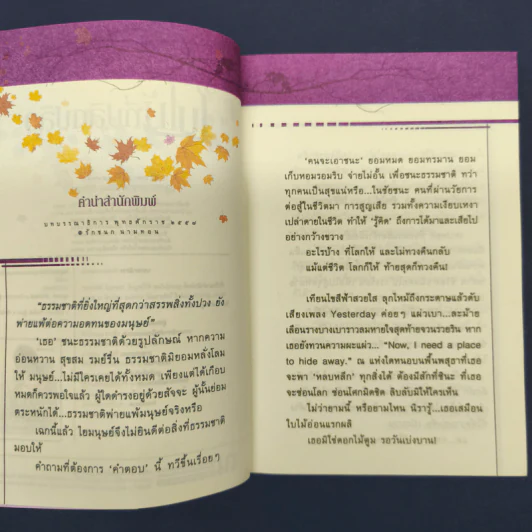 คำนำสำนักพิมพ์
บทบรรณาธิการ พุทธศักราช ๒๕๔๗
๏รักชนก นามทอน
“ธรรมชาติที่ยิ่งใหญ่ที่สุดกว่าสรรพสิ่งทั้งปวง ยัง
พ่ายแพ้ต่อความอดทนของมนุษย์”
‘เธอ’ ชนะธรรมชาติด้วยรูปลักษณ์ หากความ
อ่อนหวาน สุขสม รมย์รื่น ธรรมชาติมิยอมหลั่งโลม
ให้ มนุษย์...ไม่มีใครเคยได้ทั้งหมด เพียงแต่ได้เกือบ
หมดก็ควรพอใจแล้ว ผู้ใดดำรงอยู่ด้วยสัจจะ ผู้นั้นย่อม
ตระหนักได้...ธรรมชาติพ่ายแพ้มนุษย์จริงหรือ
เฉกนี้แล้ว ไยมนุษย์จึงไม่ยินดีต่อสิ่งที่ธรรมชาติ
มอบให้
คำถามที่ต้องการ ‘คำตอบ’ นี้ ทวีขึ้นเรื่อยๆ
‘คนจะเอาชนะ’ ยอมหมด ยอมทรมาน ยอม
เก็บหอมรอมริบ จ่ายไม่อั้น เพื่อชนะธรรมชาติ ทว่า
ทุกคนเป็นสุขแน่หรือ...ในชัยชนะ คนที่ผ่านวัยการ
ต่อสู้ในชีวิตมา การสูญเสีย รวมทั้งความเงียบเหงา
เปล่าดายในชีวิต ทำให้ ‘รู้คิด’ ถึงการได้มาและเสียไป
อย่างกว้างขวาง
อะไรบ้าง ที่โลกให้ และไม่ทวงคืนกลับ
แม้แต่ชีวิต โลกก็ให้ ท้ายสุดก็ทวงคืน!
เทียนไขสีฟ้าสวยใส ลุกไหม้ถึงกระดาษแล้วดับ
เสียงเพลง Yesterday ค่อยๆ แผ่วเบา...ละม้าย
เลือนรางบางเบาราวลมหายใจสุดท้ายจวนรวยริน หาก
เธอยังทวนความผะแผ่ว... “Now, I need a place
to hide away.” ณ แห่งใดหนอบนพื้นพสุธาที่เธอ
จะพา ‘หลบหลีก’ ทุกสิ่งได้ ต้องมีสักที่ซินะ ที่เธอ
จะซ่อนโลก ซ่อนโศกมิดชิด ลิบลับมิให้ใครเห็น
ไม่ว่ายามนี้ หรือยามไหน นิรารู้...เธอเสมือน
ใบไม้อ่อนแรกผลิ
เธอมิใช่ดอกไม้ตูม รอวันเบ่งบาน!